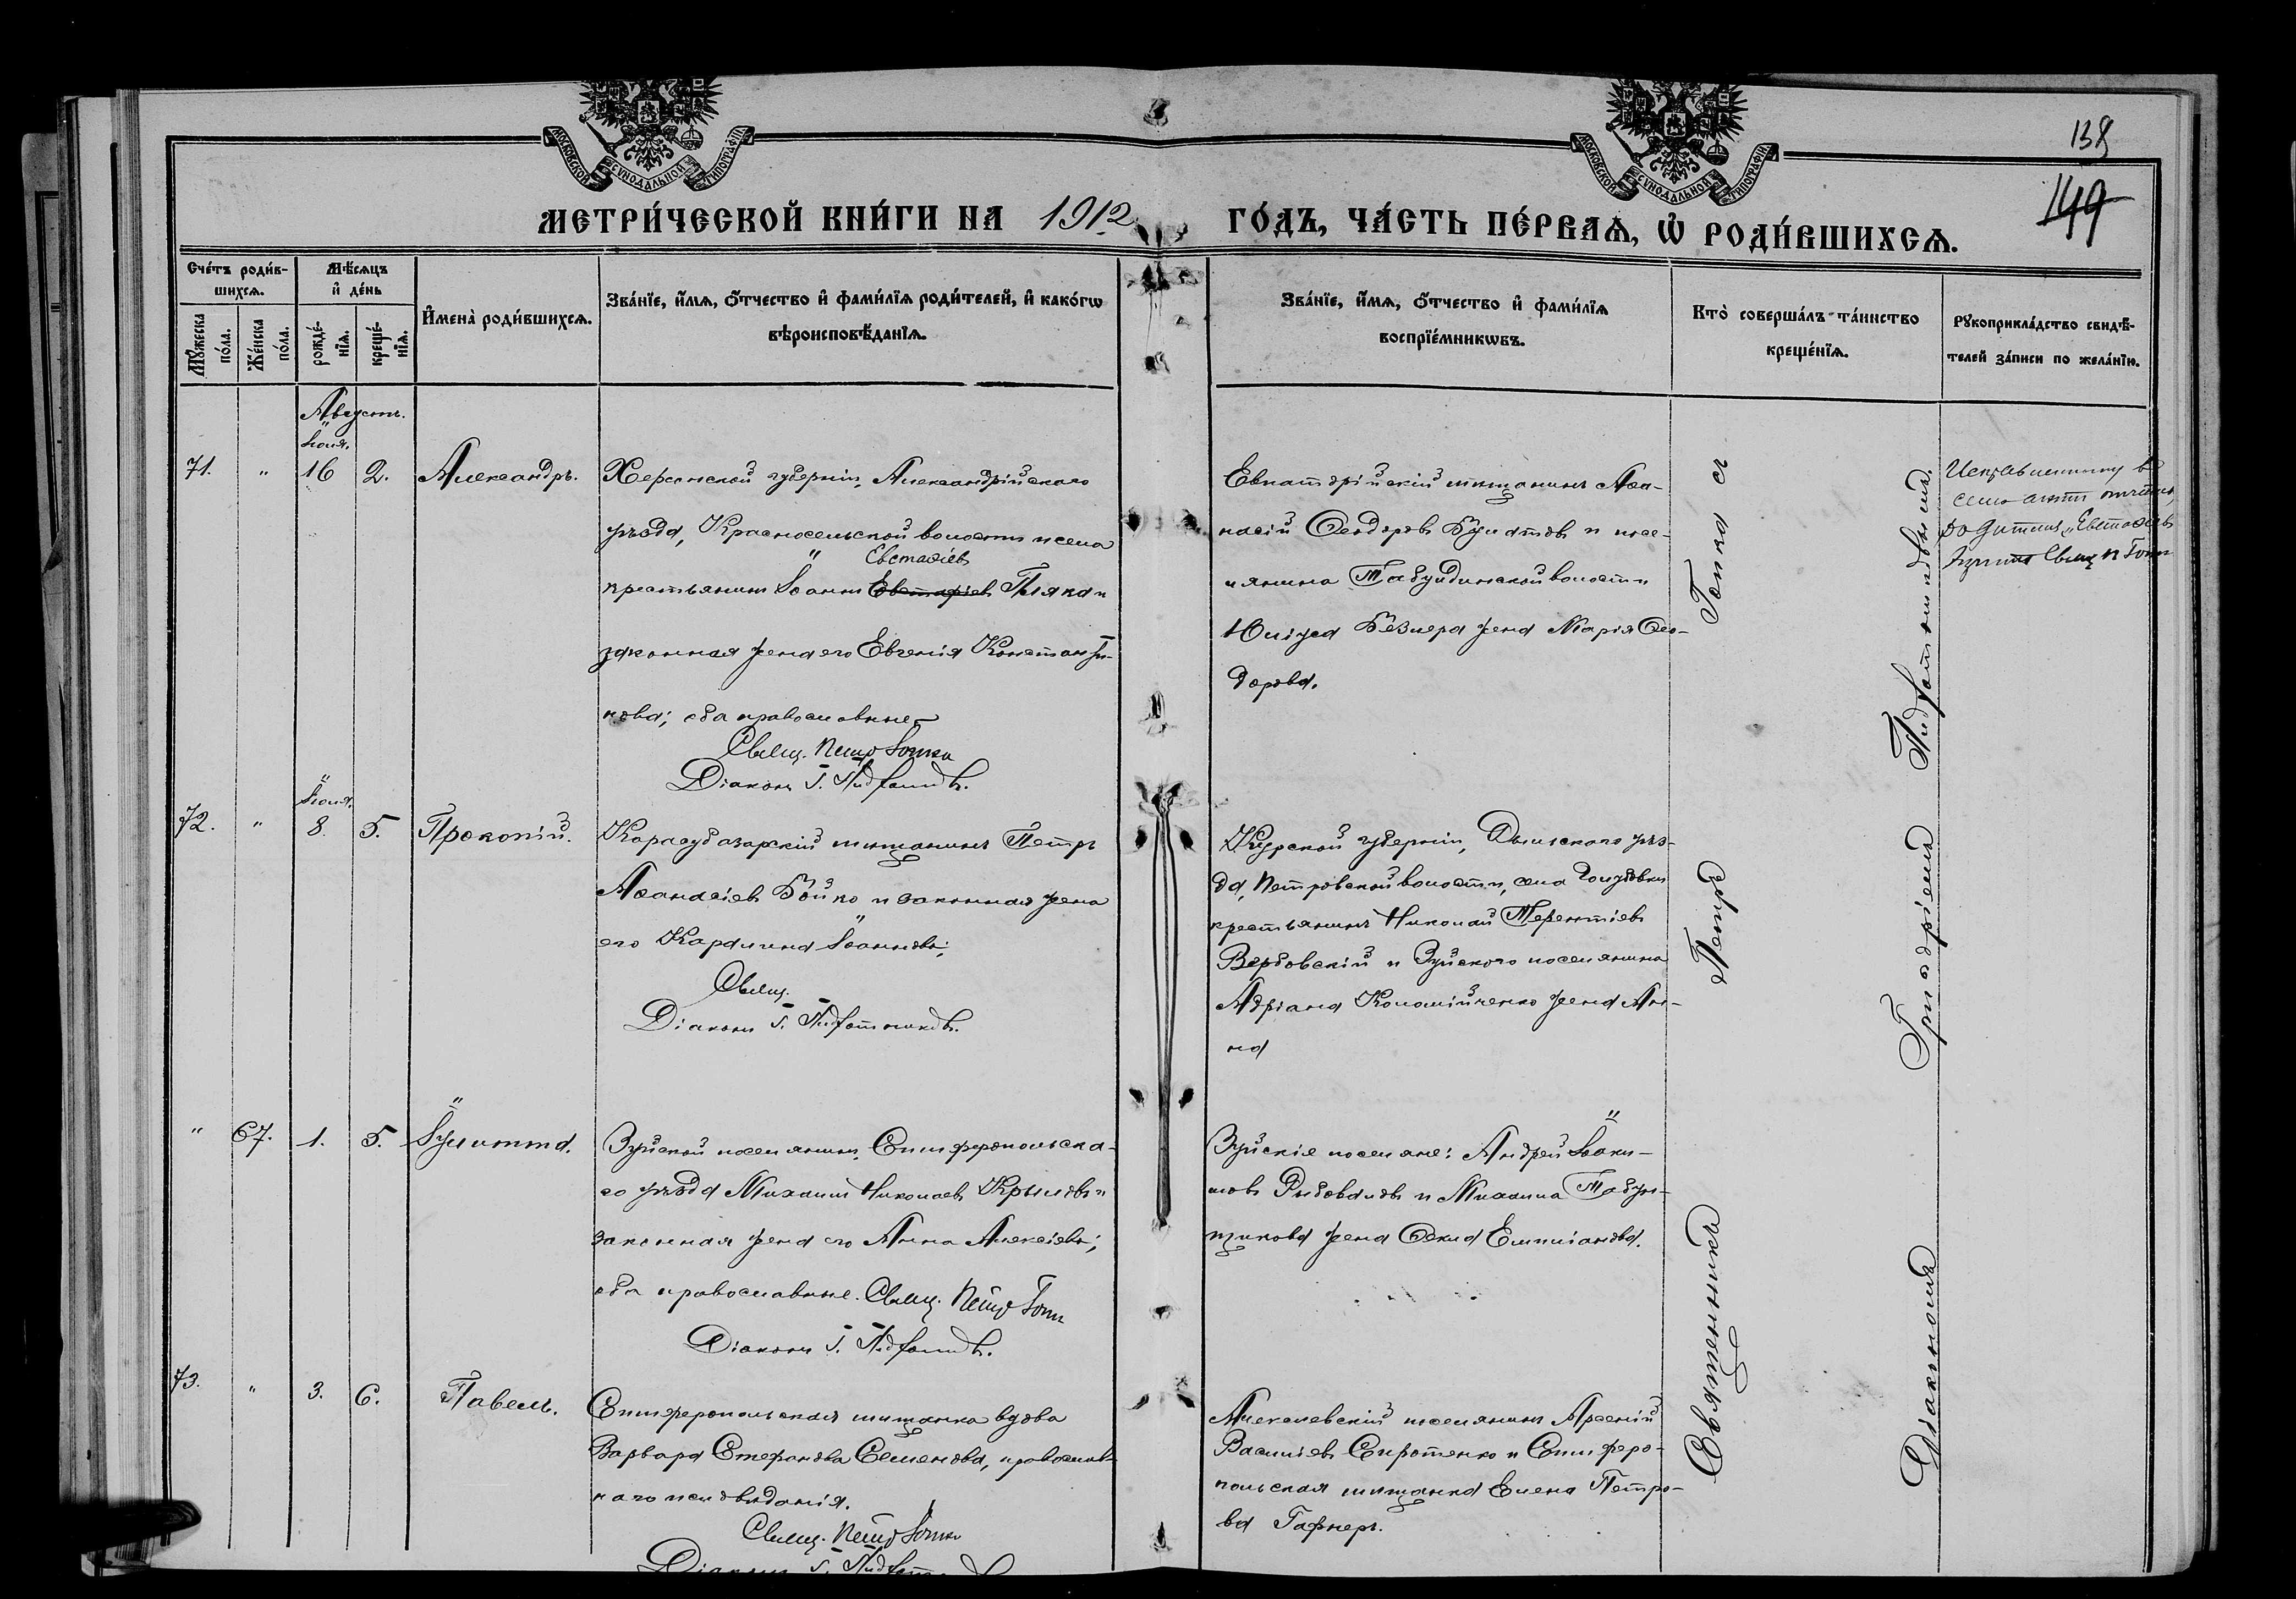 МОСКОВСКОЙ СУНОДАЛЬНОЙ ТИПОГРАФІИ
МОСКОВСКОЙ СУНОДАЛЬНОЙ ТИПОГРАФІИ
138
149
МЕТРИ́ЧЕСКОЙ КНИ́ГИ НА 1912 ГО́ДЪ, ЧА́СТЬ ПЕ́РВАѦ, Ѡ҆ РОДИ́ВШИХСѦ.
Сче́тъ роди́в-
шихсѧ.
Мѣ́сѧцъ
и҆ де́нь
Мꙋ́жеска
по́ла.
Же́нска
по́ла.
рожде́-
нїѧ.
креще́-
нїѧ.
И҆мена̀ роди́вшихсѧ.
Зва́нїе, и҆́мѧ, ѻ҆́тчество и҆ фами́лїѧ роди́телей, и҆ како́гѡ
вѣроисповѣ́данїѧ.
Зва́нїе, и҆́мѧ, ѻ҆́тчество и҆ фами́лїѧ
воспрїе́мникѡвъ.
Кто̀ соверша́лъ та́инство
креще́нїѧ.
Рꙋкоприкла́дство свидѣ́-
телей за́писи по жела́нїю.
Августъ.
71. " 16 2. Александръ.
Херсонской губерніи, Александрійскаго
уѣзда, Красносельской волости и села
Евстафіевъ
крестьянинъ Іоаннъ Евстафіевъ Пляка и
законная жена его Евгенія Константи-
нова; оба православные
Свящ. Петръ Гопка
Діаконъ Г. Пидфатниковъ.
Евпаторійскій мѣщанинъ Аѳа-
насій Ѳеодоровъ Булатовъ и посе-
лянина Табулдинской волости
Юліуса Безлера жена Марія Ѳео-
дорова.
Исправленному в
семъ актѣ отчеству
"Евстафіевъ
Свящ П Гопка
72. " 8. 5. Прокопій.
Карасубазарскій мѣщанинъ Петръ
Аѳанасіевъ Бойко и законная жена
его Каролина Іоаннова;
Свящ.
Діаконъ Г. Пидфатниковъ.
Курской губерніи, уѣз-
да, Петровской волости, села Голубовки
крестьянинъ Николай Терентіевъ
Вербовскій и Зуйского поселянина
Адріана Коломійченко жена Ан-
на
" 67. 1. 5. Іулитта.
Зуйской поселянинъ, Симферопольска-
го уѣзда Михаилъ Николаевъ Крыловъ и
законная жена его Анна Алексіева;
оба православные. Свящ. Петръ Гопка
Діаконъ Г. Пидфатниковъ.
Зуйскіе поселяне: Андрей Іоаки-
мовъ Рыбоваловъ и Михаила Табун-
щикова жена Ѳекла Емиліанова.
73. " 3. 6. Павелъ.
Симферопольская мѣщанка вдова
Варвара Стефанова Семенова, православ-
наго исповѣданія.
Свящ. Петръ Гопка
Діаконъ Г. Пидфатниковъ
Алексѣевскій поселянинъ Арсеній
Василіевъ Сиротенко и Симферо-
польская мѣщанка Елена Петро-
ва Гафнеръ.
Священникъ Петръ Гопка съ
Діакономъ Григоріемъ Пидфатниковымъ.